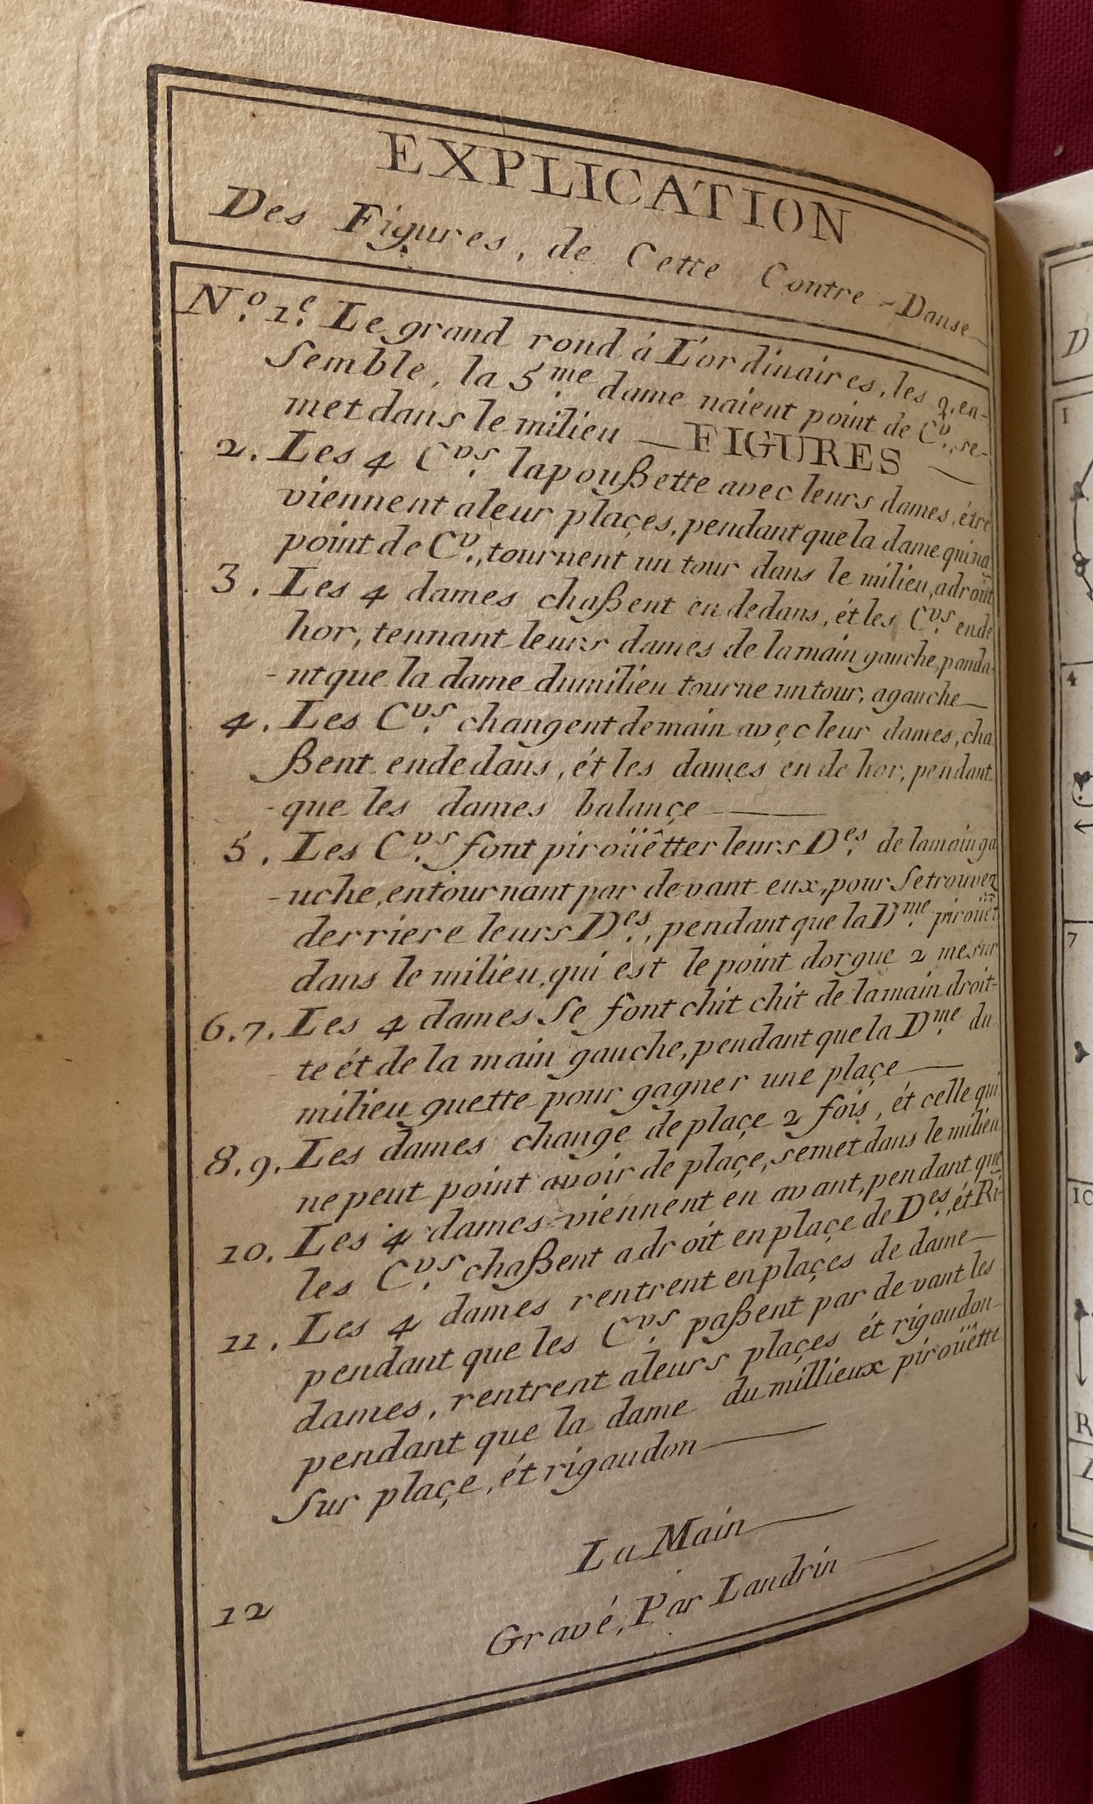 EXPLICATION
Des Figures, de Cette Contre-Danse
N.º 1.e Le grand rond à L'ordinaires, les 2, en-
semble, la 5.me dame naient point de C.v, se-
met dans le milieu — FIGURES —
2. Les 4 C.vs lapoußette avec leurs dames, étre
viennent aleur plaçes, pendant que la dame qui na
point de C.v, tournent un tour dans le milieu, adroit
3. Les 4 dames chaßent en dedans, ét les C.vs ende
hor, tennant leurs dames de lamain gauche, penda-
-nt que la dame dumilieu tourne un tour, agauche —
4. Les C.vs changent demain aveç leur dames, cha
ßent endedans, ét les dames en de hor, pendant
-que les dames balançe —
5. Les C.vs font piroüêtter leurs D.es de lamain ga
-uche, entournant par devant eux, pour se trouvez
derriere leurs D.es, pendant que la D.me piroüet
dans le milieu, qui est le point dorgue 2 mesur
6.7. Les 4 dames se font chit chit de lamain droit-
te ét de la main gauche, pendant que la D.me du
milieu guette pour gagner une plaçe —
8.9. Les dames change de plaçe 2 fois, ét celle qui
ne peut point avoir de plaçe, semet dans le milieu
10. Les 4 dames viennent en avant, pendant que
les C.vs chaßent adroit en plaçe de D.es, ét Ri-
11. Les 4 dames rentrent en plaçes de dame —
pendant que les C.vs paßent par devant les
dames, rentrent aleurs plaçes ét rigaudon
pendant que la dame du millieux piroüêtte
sur plaçe, ét rigaudon —
La Main —
12
Gravé, Par Landrin —
D
1
4
7
10
R